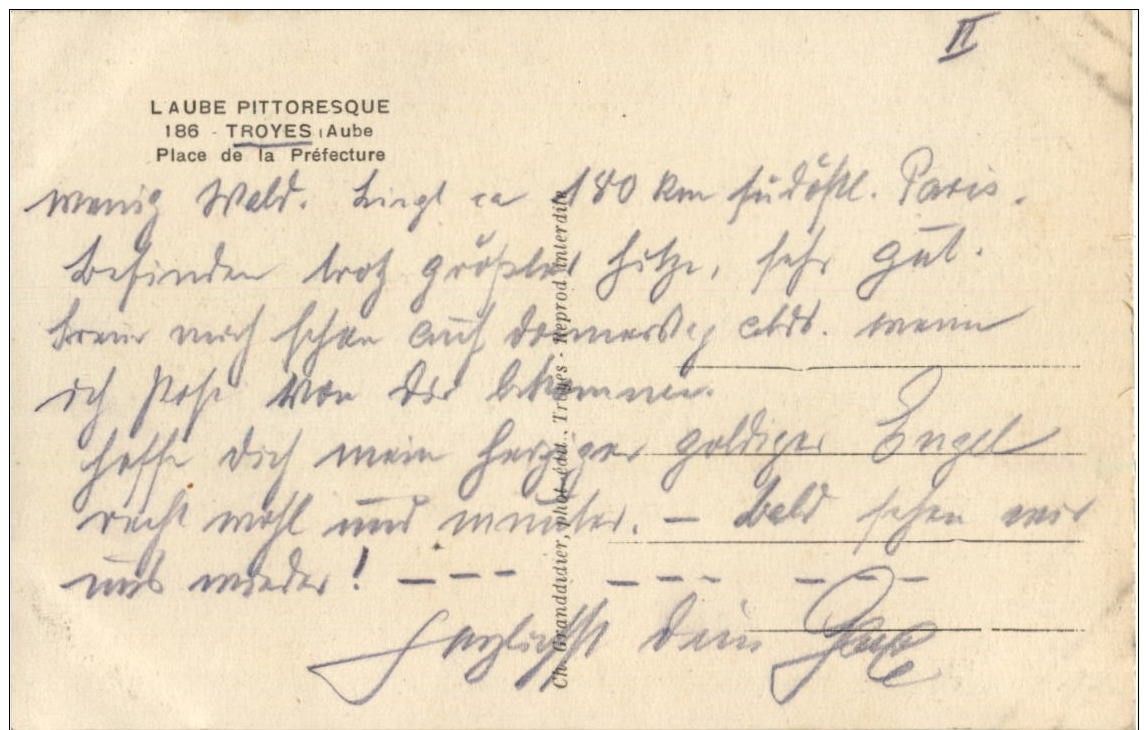 II
L'AUBE PITTORESQUE
186 - TROYES (Aube
Place de la Préfecture
wenig Wald. Liegt ca 180 km südöstl. Paris.
Befinden trotz größter Hitze, sehr gut.
Freue mich schon auf Donnerstg abds. wenn
ich Post von Dir bekomme.
Hoffe Dich mein herziger goldiger Engel
recht wohl und munter. – Bald sehen wir
uns wieder! – – – – – – – – –
Herzlichst Dein
Ch. Granddidier, phot.-édit., Troyes - Reprod interdite